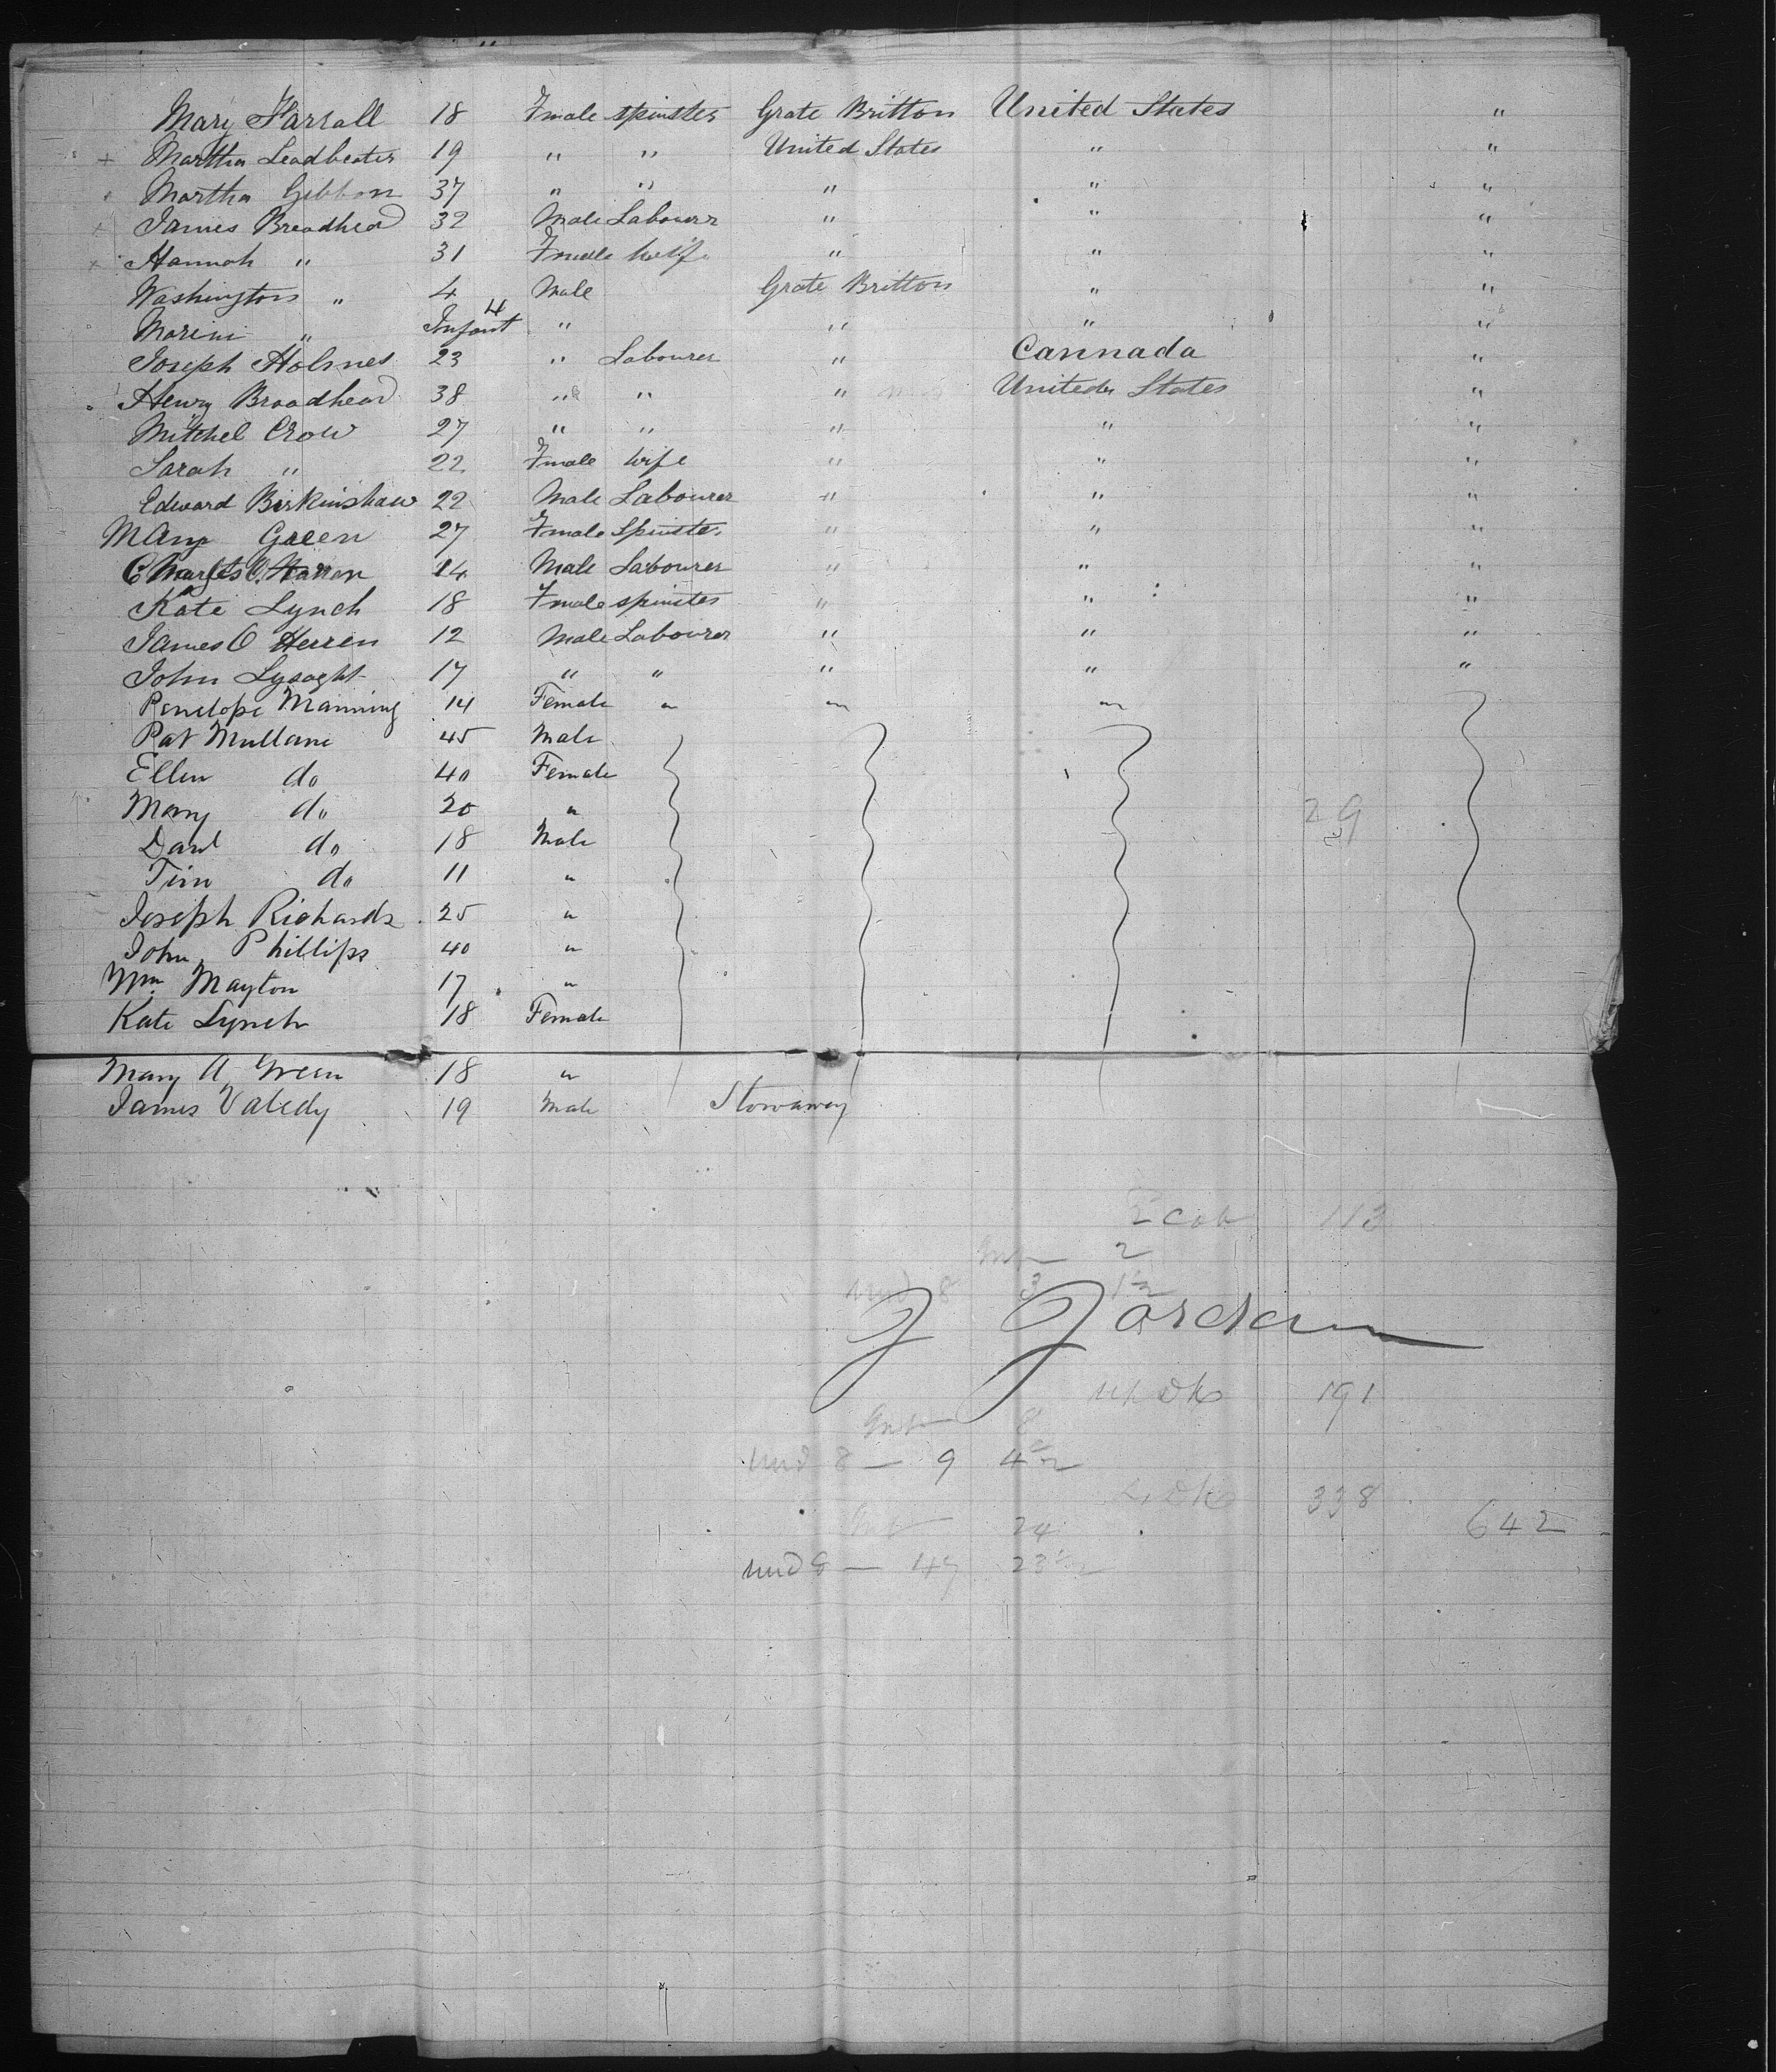 Mary Farrall 18 Fmale Spinster Grate Britton United States "
+ Martha Leadbeater 19 " " United States " "
Martha Gibbon 37 " " " " "
+ James Broadhead 32 Male Labourer " " "
+ Hannah " 31 Fmale Wife " " "
Washington " 4 Male Grate Britton " "
" Infant 4 " " " "
Joseph Holmes 23 " Labourer " Cannada "
Henry Broadhead 38 " " " United States "
Mitchel Crow 27 " " " " "
Sarah " 22 Fmale Wife " " "
Edward Birkinshaw 22 Male Labourer " " "
Mary Green 27 Fmale Spinster " " "
Charles O 14 Male Labourer " " "
Kate Lynch 18 Fmale Spinster " " "
James O Herren 12 Male Labourer " " "
John Lysaght 17 " " " " "
Penelope Manning 14 Female " " "
Pat Mullane 45 Male
Ellen do 40 Female
Mary do 20 " 29
Danl do 18 Male
Tim do 11 "
Joseph Richards 25 "
John Phillips 40 "
Wm Mayton 17 "
Kate Lynch 18 Female
Mary A Green 18 "
James Valedy 19 Male Stowaway
2 Cab 113
2
und 8 3 1½
J Jordan
up Dk 191
Inf 8
und 8 — 9 4½
L Dk 338
Inf 24 642
und 8 — 47 23½